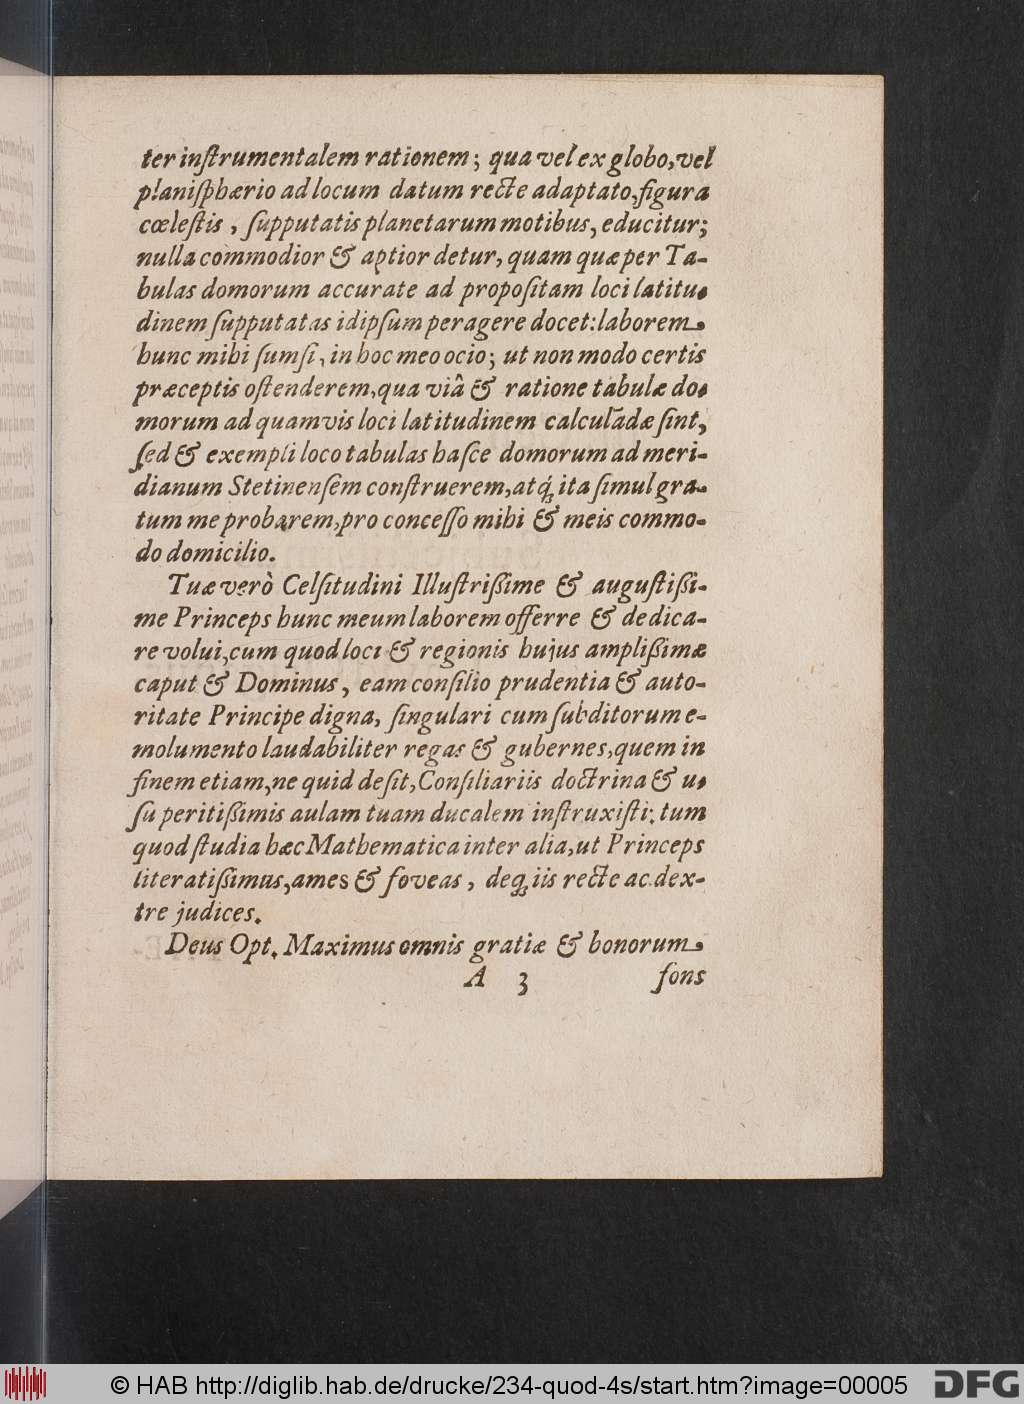 ter inſtrumentalem rationem; qua vel ex globo, vel
planiſphærio ad locum datum recte adaptato, figura
cœleſtis, ſupputatis planetarum motibus, educitur;
nulla commodior & aptior detur, quam quæ per Ta-
bulas domorum accurate ad propoſitam loci latitu-
dinem ſupputatas idipſum peragere docet: laborem
hunc mihi ſumſi, in hoc meo ocio; ut non modo certis
præceptis oſtenderem, qua viâ & ratione tabulæ do-
morum ad quamvis loci latitudinem calculãdæ ſint,
ſed & exempli loco tabulas haſce domorum ad meri-
dianum Stetinenſem conſtruerem, atq́; ita ſimul gra-
tum me probarem, pro conceſſo mihi & meis commo-
do domicilio.
Tuæ verò Celſitudini Illuſtrißime & auguſtißi-
me Princeps hunc meum laborem offerre & dedica-
re volui, cum quod loci & regionis hujus amplißimæ
caput & Dominus, eam conſilio prudentia & auto-
ritate Principe digna, ſingulari cum ſubditorum e-
molumento laudabiliter regas & gubernes, quem in
finem etiam, ne quid deſit, Conſiliariis doctrina & u-
ſu peritißimis aulam tuam ducalem inſtruxiſti: tum
quod ſtudia hæc Mathematica inter alia, ut Princeps
literatißimus, ames & foveas, deq; iis recte ac dex-
tre judices.
Deus Opt. Maximus omnis gratiæ & bonorum
A 3 fons
© HAB http://diglib.hab.de/drucke/234-quod-4s/start.htm?image=00005
DFG